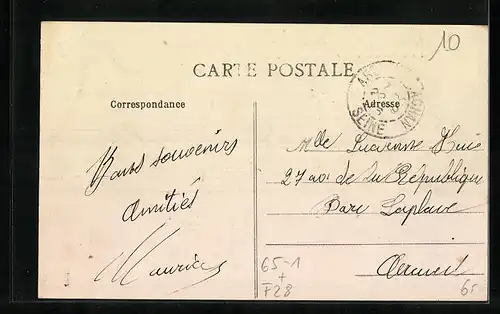 10
CARTE POSTALE
AR CACHAN
SEINE
Correspondance
Adresse
Bons souvenirs
Amitiés
Maurice
Mlle Lucienne
27 de la République
Parc Laplace
Arcueil
65-1
+
F28
65